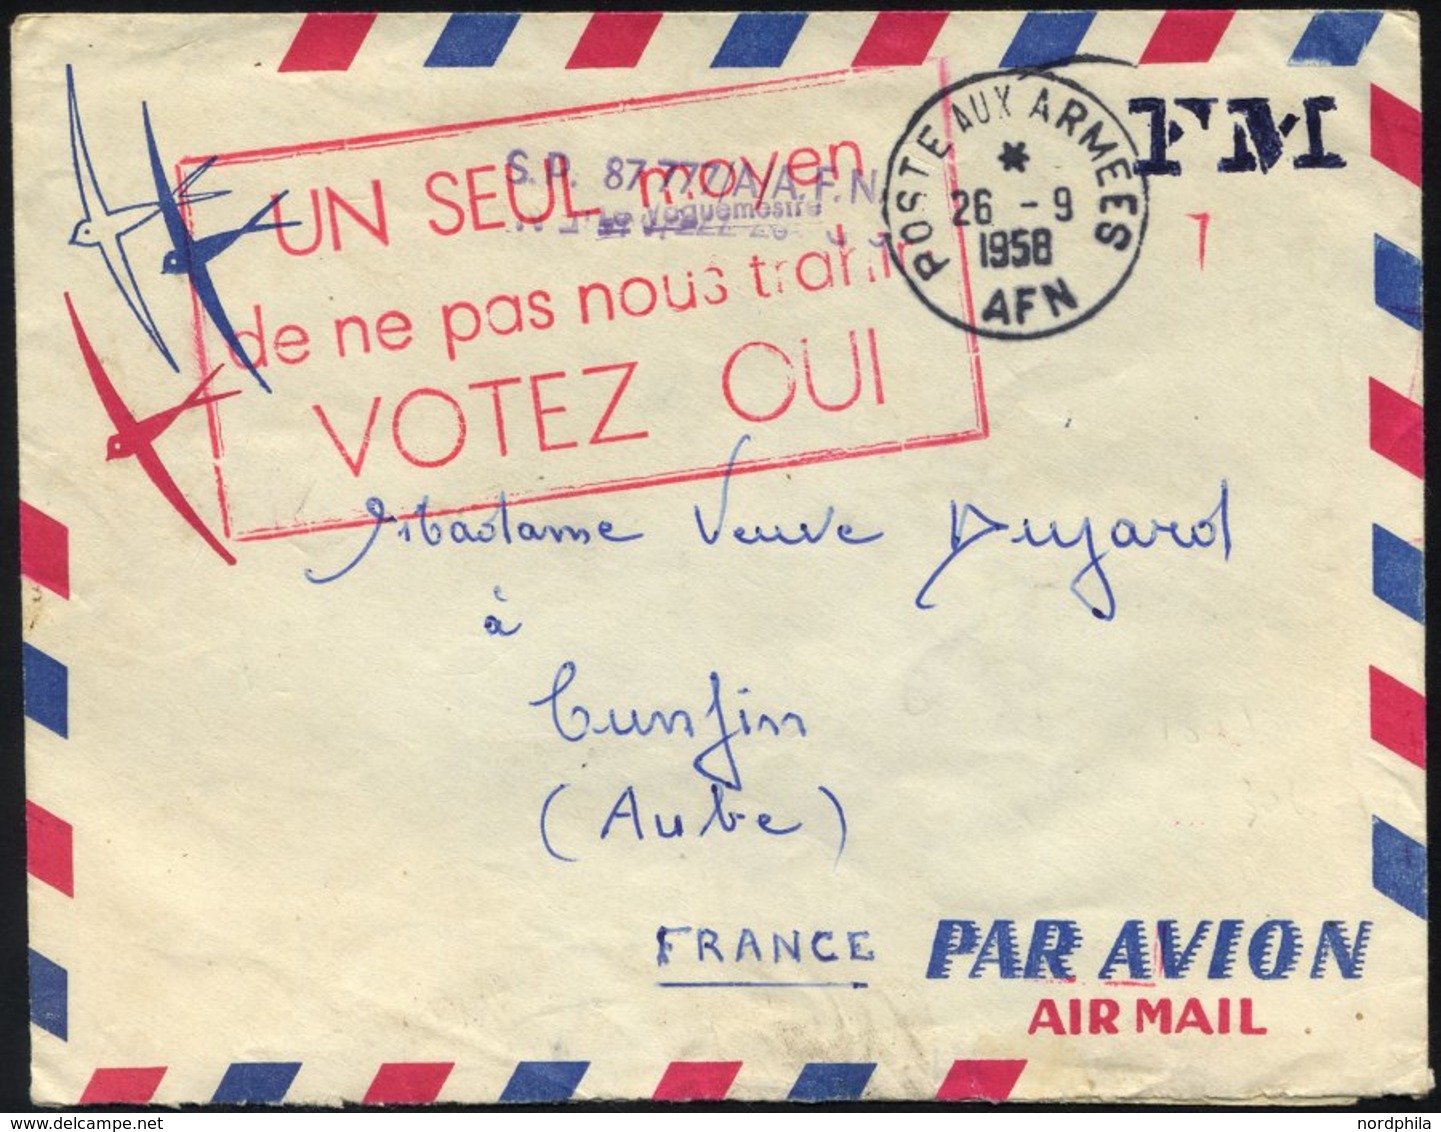 UN SEUL moyen
de ne pas nous trahir
VOTEZ OUI
S.P. 87.777/A/A.F.N.
Le Vaguemestre
POSTE AUX ARMEES
26 - 9
1958
AFN
FM
Madame Veuve Dujard
à
Cunfin
(Aube)
FRANCE
PAR AVION
AIR MAIL
nordphila